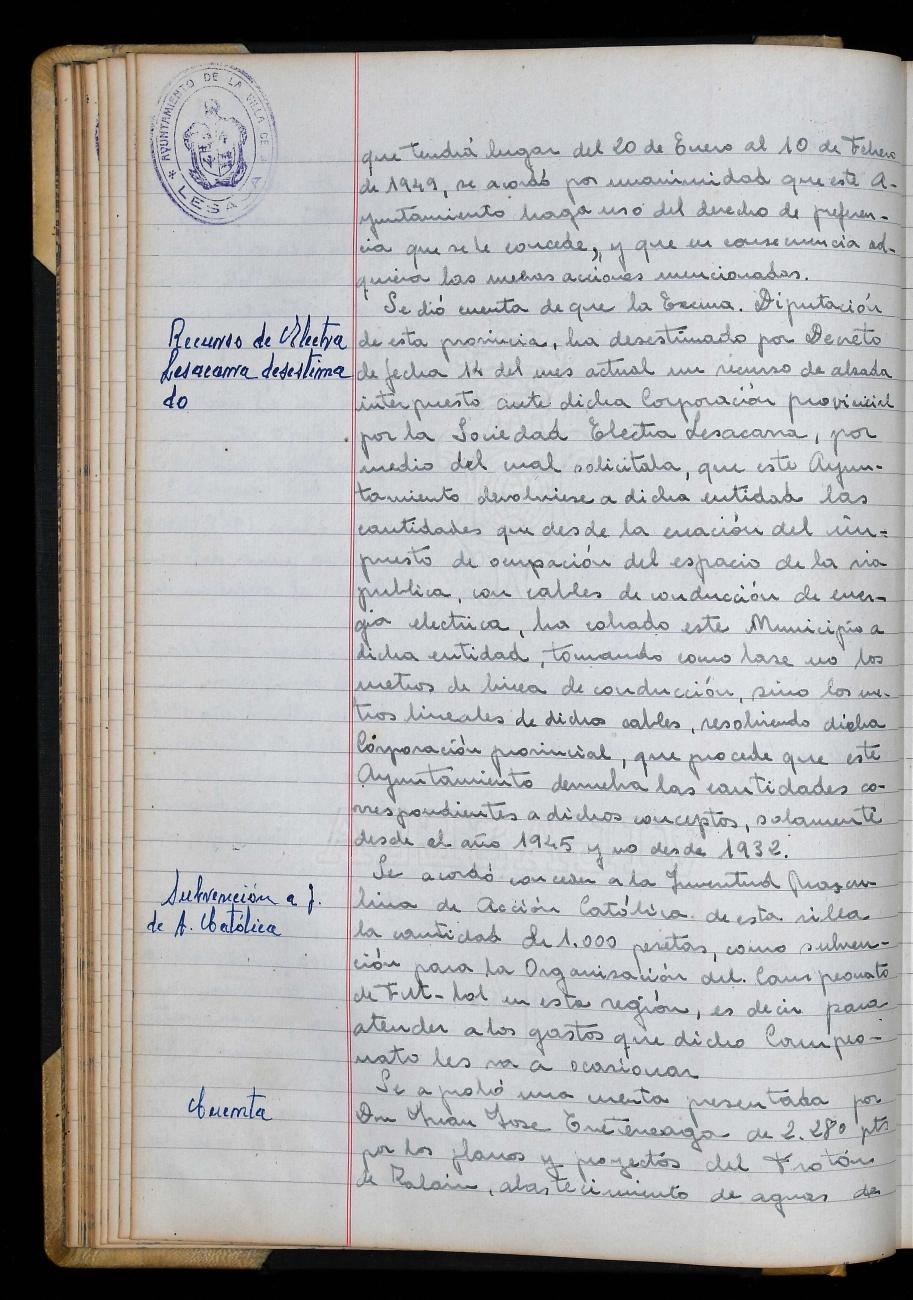 AYUNTAMIENTO DE LA VILLA DE
* LESACA
que tendrá lugar del 20 de Enero al 10 de Febrero
de 1949, se acordó por unanimidad que este A-
yuntamiento haga uso del derecho de preferen-
cia que se le concede, y que en consecuencia ad-
quiera las nuevas acciones mencionadas.
Recurso de Electra
Lesacarra desestima
do
Se dió cuenta de que la Excma. Diputación
de esta provincia, ha desestimado por Decreto
de fecha 14 del mes actual un recurso de alzada
interpuesto ante dicha Corporación provincial
por la Sociedad Electra Lesacarra, por
medio del cual solicitaba, que este Ayun-
tamiento devolviese a dicha entidad las
cantidades que desde la creación del im-
puesto de ocupación del espacio de la via
publica, con cables de conducción de ener-
gia electrica, ha cobrado este Municipio a
dicha entidad, tomando como base no los
metros de linea de conducción, sino los me-
tros lineales de dichos cables, resolviendo dicha
Corporación provincial, que procede que este
Ayuntamiento devuelva las cantidades co-
rrespondientes a dichos conceptos, solamente
desde el año 1945 y no desde 1932.
Subvención a J.
de A. Católica
Se acordó conceder a la Juventud Mascu-
lina de Acción Católica de esta villa
la cantidad de 1.000 pesetas, como subven-
ción para la Organisación del Campeonato
de Fut-bol en esta región, es decir para
atender a los gastos que dicho Campeo-
nato les va a ocasionar
Cuenta
Se aprobó una cuenta presentada por
Don Juan Jose de 2.280 pts
por los planos y proyectos del Frotón
de , abastecimiento de aguas de